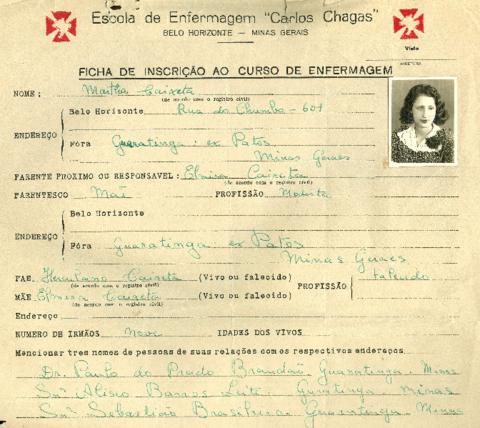 Escola de Enfermagem "Carlos Chagas"
BELO HORIZONTE — MINAS GERAIS
Visto
FICHA DE INSCRIÇÃO AO CURSO DE ENFERMAGEM
NOME: Martha Caixeta
(de acordo com o registro civil)
Belo Horizonte Rua do Chumbo - 601
ENDEREÇO
Fóra Guaratinga ex Patos
Minas Geraes
PARENTE PROXIMO OU RESPONSAVEL: Elmira Caixeta
(de acordo com o registro civil)
PARENTESCO Mãi PROFISSÃO Modista
Belo Horizonte
ENDEREÇO
Fóra Guaratinga ex Patos
Minas Geraes
PAE (Vivo ou falecido) falecido
Caixeta
(de acordo com o registro civil)
PROFISSÃO
MÃE Elmira Caixeta (Vivo ou falecido)
(de acordo com o registro civil)
Endereço
NUMERO DE IRMÃOS nove IDADES DOS VIVOS
Mencionar tres nomes de pessoas de suas relações com os respectivos endereços
Dr. Paulo do Prado Brandão Guaratinga. Minas
Snr Alisio Barros Leite. Guaratinga Minas
Snr Sebastião Guaratinga Minas